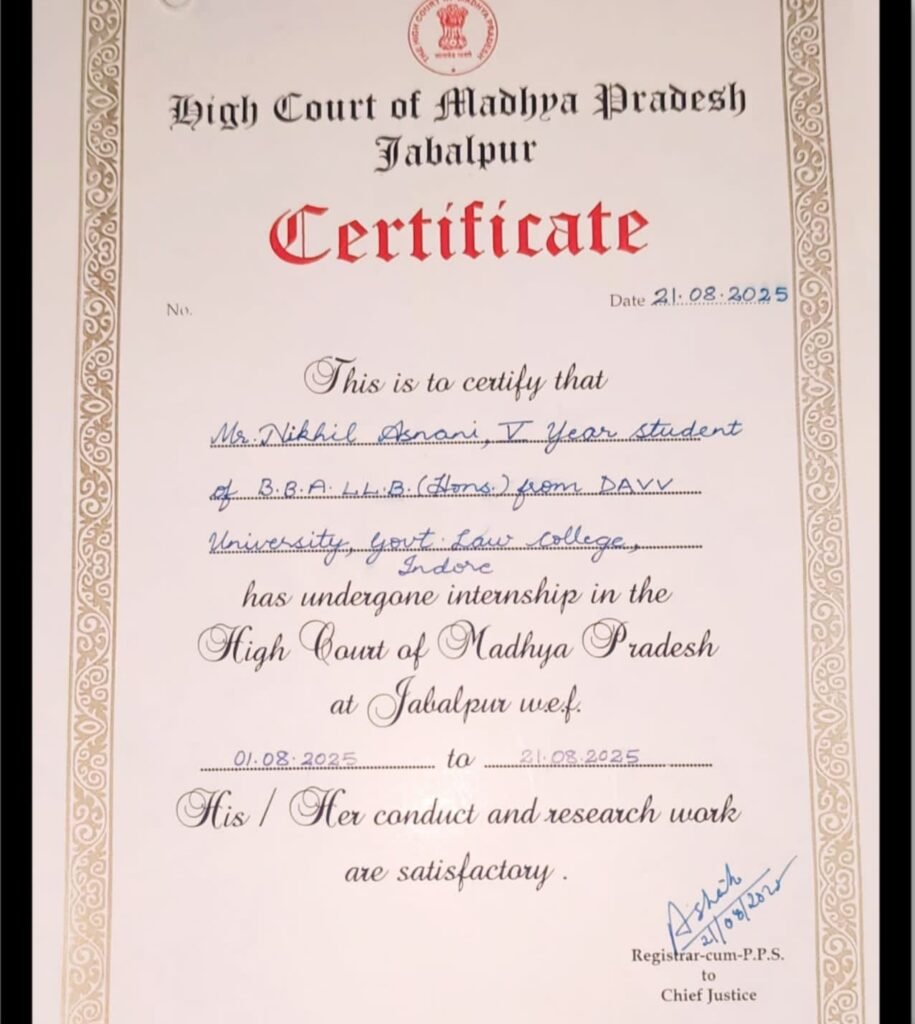 THE HIGH COURT OF MADHYA PRADESH
सत्यमेव जयते
High Court of Madhya Pradesh
Jabalpur
Certificate
No.
Date 21.08.2025
This is to certify that
Mr. Nikhil Asnani, V Year student
of B.B.A. LL.B. (Hons.) from DAVV
University, Govt. Law College,
Indore
has undergone internship in the
High Court of Madhya Pradesh
at Jabalpur w.e.f.
01.08.2025 to 21.08.2025
His / Her conduct and research work
are satisfactory .
Ashish
21/08/2025
Registrar-cum-P.P.S.
to
Chief Justice